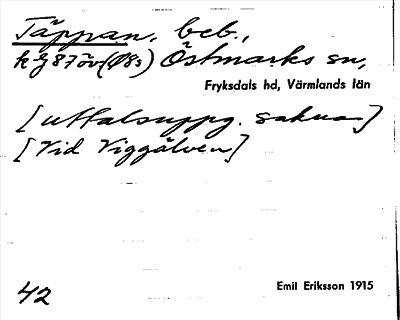 Täppan, beb.,
kg 87 öv (Ø8s) Östmarks sn,
Fryksdals hd, Värmlands län
[uttalsuppg. saknas]
[Vid Viggälven]
42
Emil Eriksson 1915